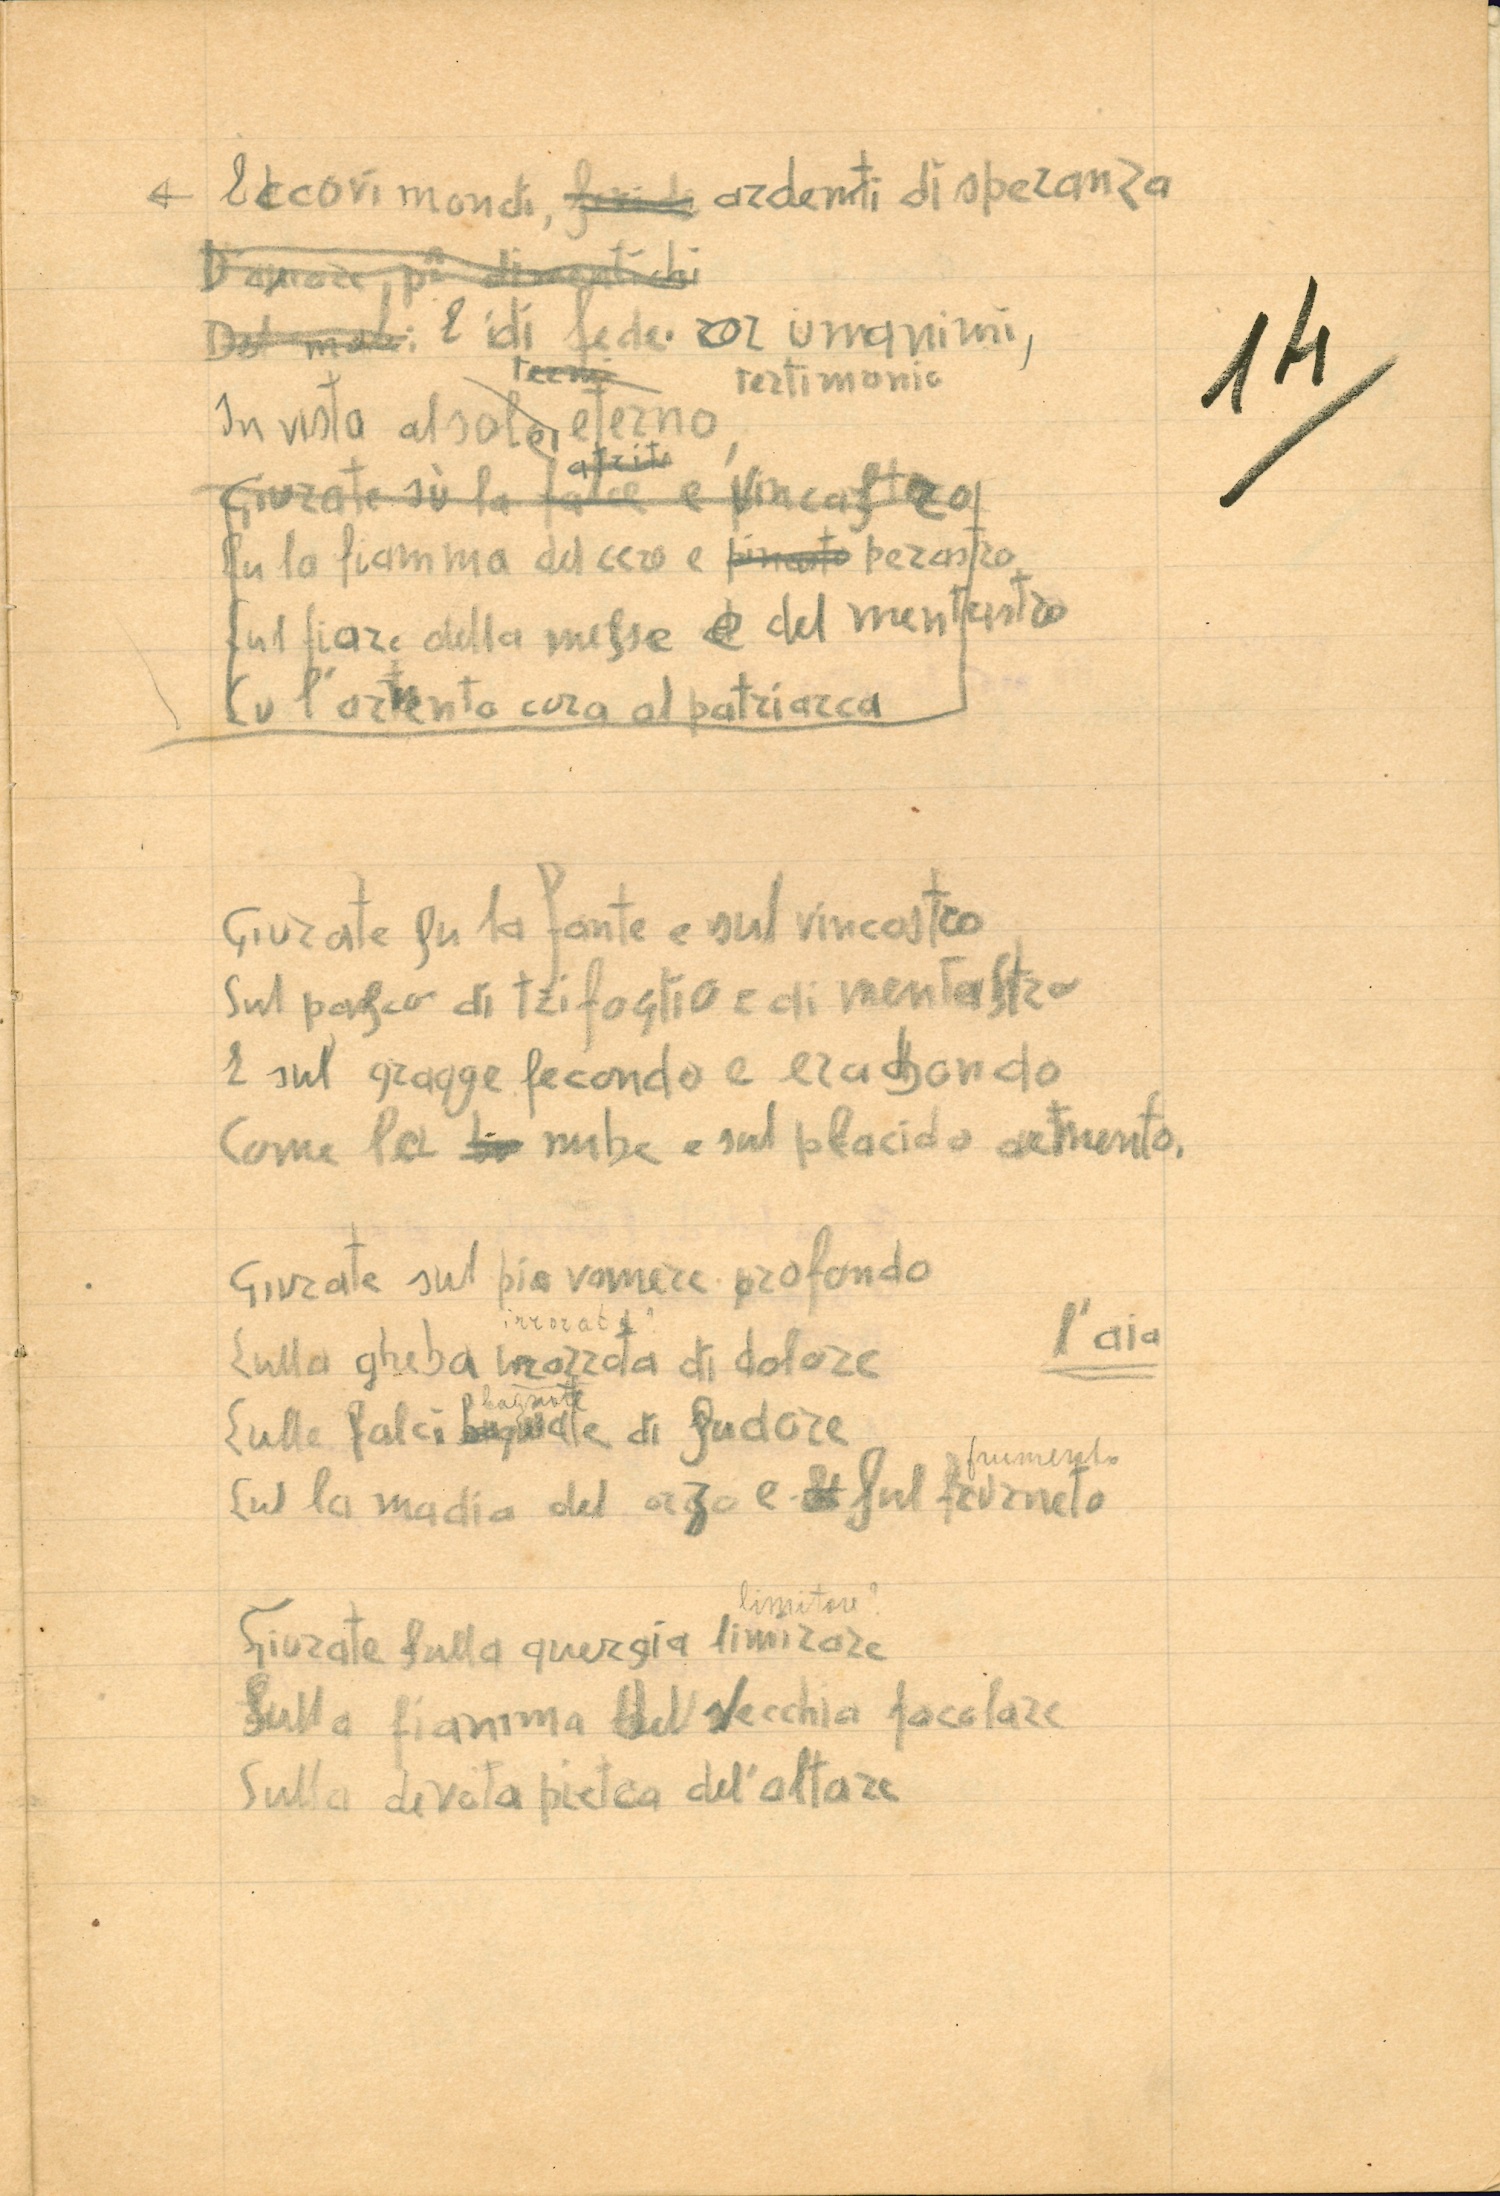 Eccovi mondi, ardenti di speranza
D'amore, più dimentichi
Del male. E di fede. or unanimi,
testimonio
In vista al sole eterno,
Giurate sù la falce e vincastro
Su la fiamma del cero e pinastro perastro
Sul fiore della messe e del mentastro
Su l'armento cura al patriarca
14
Giurate su la fonte e sul vincastro
Sul pasco di trifoglio e di mentastro
E sul gragge fecondo e erabondo
Come la nube e sul placido armento.
Giurate sul pio vomere profondo
irrorata?
Sulla gheba irrorata di dolore
l'aia
bagnate
Sulle falci bagnate di sudore
frumento
Sul la madia del orzo e sul frumeto
limitare?
Giurate sulla quergia limirare
Sulla fiamma del vecchia focolare
Sulla devota pietra del'altare